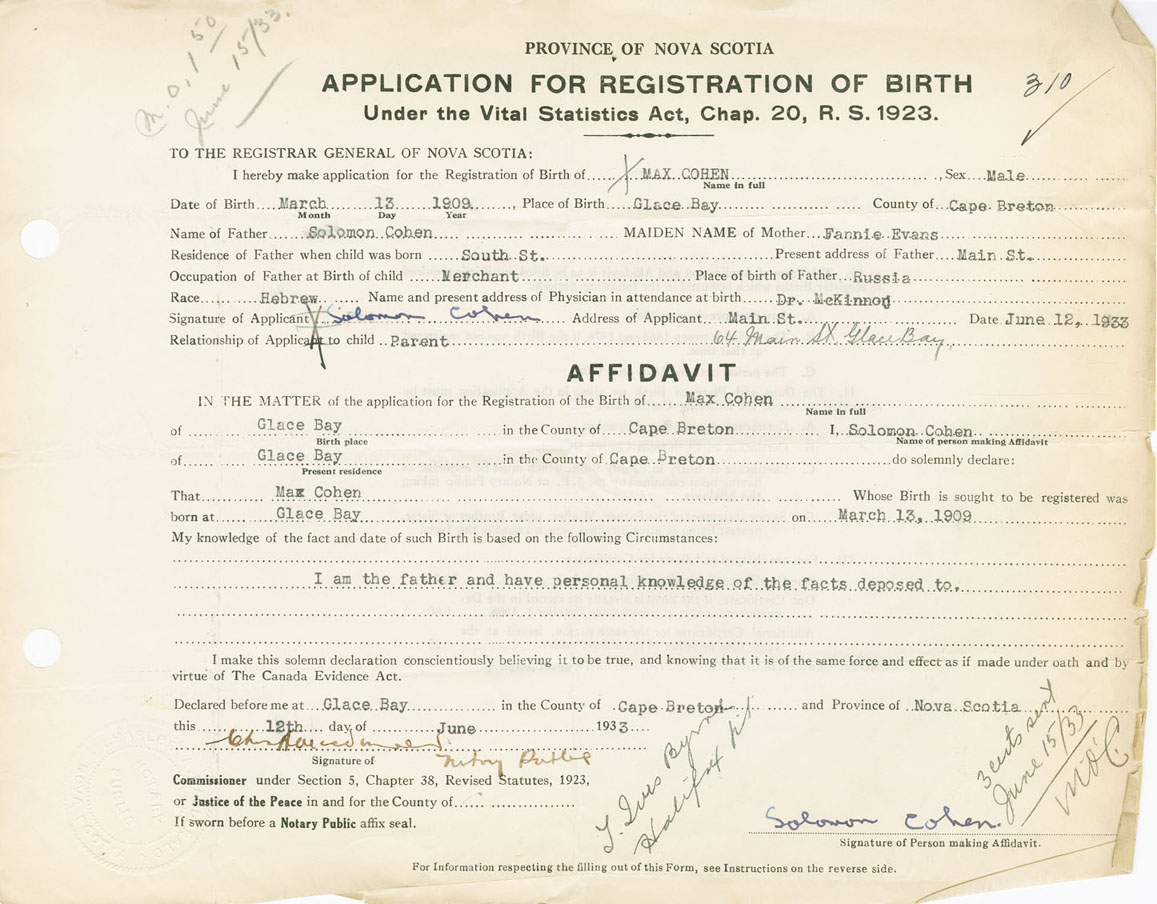 M.O. 1 50
June 15/33.
PROVINCE OF NOVA SCOTIA
APPLICATION FOR REGISTRATION OF BIRTH
310
Under the Vital Statistics Act, Chap. 20, R. S. 1923.
TO THE REGISTRAR GENERAL OF NOVA SCOTIA:
I hereby make application for the Registration of Birth of X MAX COHEN, Sex Male
Name in full
Date of Birth March 13 1909, Place of Birth Glace Bay County of Cape Breton
Month Day Year
Name of Father Solomon Cohen MAIDEN NAME of Mother Fannie Evans
Residence of Father when child was born South St. Present address of Father Main St.
Occupation of Father at Birth of child Merchant Place of birth of Father Russia
Race Hebrew Name and present address of Physician in attendance at birth Dr. McKinnon
Signature of Applicant X Solomon Cohen Address of Applicant Main St. Date June 12, 1933
Relationship of Applicant to child Parent 64 Main St Glace Bay.
AFFIDAVIT
IN THE MATTER of the application for the Registration of the Birth of Max Cohen
Name in full
of Glace Bay in the County of Cape Breton I, Solomon Cohen
Birth place Name of person making Affidavit
of Glace Bay in the County of Cape Breton do solemnly declare:
Present residence
That Max Cohen Whose Birth is sought to be registered was
born at Glace Bay on March 13, 1909
My knowledge of the fact and date of such Birth is based on the following Circumstances:
I am the father and have personal knowledge of the facts deposed to.
I make this solemn declaration conscientiously believing it to be true, and knowing that it is of the same force and effect as if made under oath and by
virtue of The Canada Evidence Act.
Declared before me at Glace Bay in the County of Cape Breton and Province of Nova Scotia
this 12th day of June 1933
Signature of Notary Public
Commissioner under Section 5, Chapter 38, Revised Statutes, 1923,
or Justice of the Peace in and for the County of
If sworn before a Notary Public affix seal.
Halifax
3 cents sent
June 15/33
M.O.C.
Solomon Cohen.
Signature of Person making Affidavit.
For Information respecting the filling out of this Form, see Instructions on the reverse side.